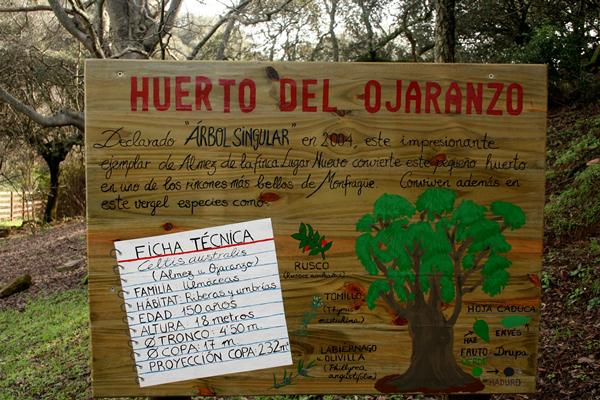 HUERTO DEL OJARANZO
Declarado "ÁRBOL SINGULAR" en 2004, este impresionante
ejemplar de Almez de la finca Lugar Nuevo convierte este pequeño huerto
en uno de los rincones más bellos de Monfrague. Conviven además en
este vergel especies como:
FICHA TÉCNICA
Celtis australis
(Almez u Ojaranzo)
FAMILIA Ulmaceas
HÁBITAT: Riberas y umbrías
EDAD 150 años
ALTURA 18 metros
Ø TRONCO: 4'50 m
Ø COPA: 17 m
PROYECCIÓN COPA: 232 m²
RUSCO
(Ruscus aculeatus)
TOMILLO
(Thymus mastichina)
LABIÉRNAGO
u OLIVILLA
(Phillyrea
angustifolia)
HOJA CADUCA
HAZ
ENVÉS
FRUTO - Drupa
MADURO